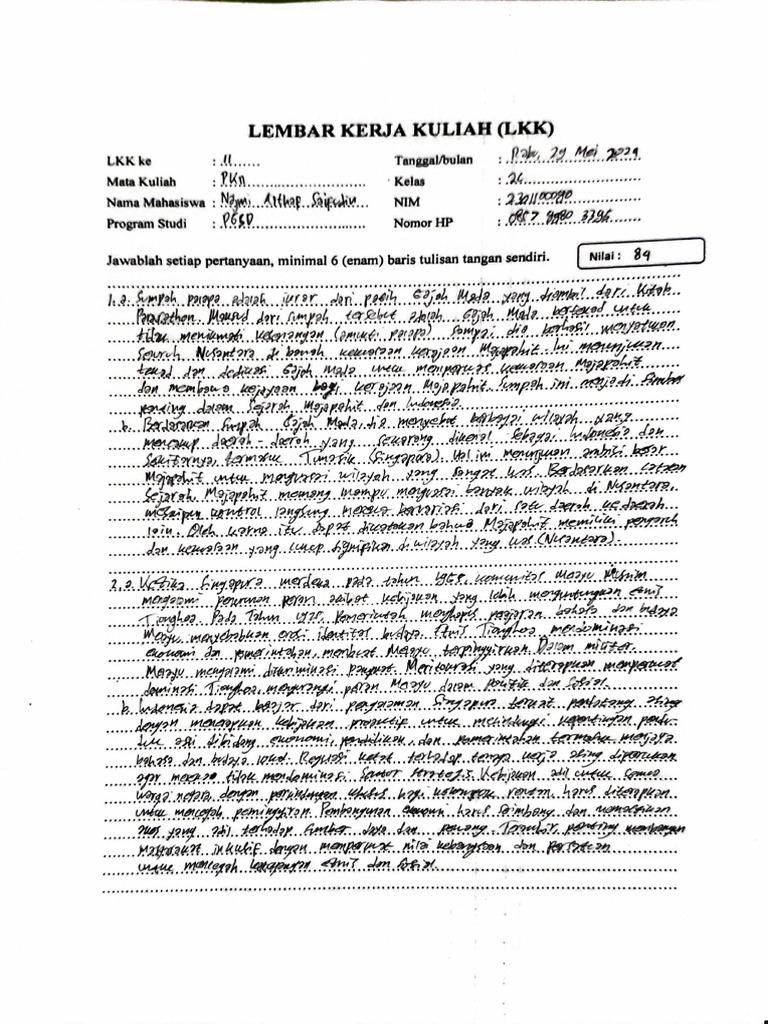 LEMBAR KERJA KULIAH (LKK)
LKK ke : 11 Tanggal/bulan : Rabu, 29 Mei 2024
Mata Kuliah : PKn Kelas : 2C
Nama Mahasiswa : Najmi Althaf Saipudin NIM
Program Studi : PGSD Nomor HP
Jawablah setiap pertanyaan, minimal 6 (enam) baris tulisan tangan sendiri. Nilai : 84
1. a. Sumpah palapa adalah ikrar dari patih Gajah Mada yang diambil dari Kitab
Pararathon. Maksud dari sumpah tersebut adalah Gajah Mada bertekad untuk
tidak menikmati kesenangan (amukti palapa) sampai dia berhasil menyatukan
Seluruh Nusantara di bawah kekuasaan kerajaan Majapahit. Ini menunjukan
tekad dan dedikasi Gajah Mada untuk memperluas kekuasaan Majapahit
dan membawa kejayaan bagi kerajaan Majapahit. Sumpah ini menjadi simbol
penting dalam Sejarah Majapahit dan Indonesia.
b. Berdasarkan Sumpah Gajah Mada, dia menyebut berbagai wilayah yang
mencakup daerah-daerah yang sekarang dikenal sebagai Indonesia dan
Sekitarnya, termasuk Tumasik (Singapura). Hal ini menunjukan ambisi besar
Majapahit untuk menguasai wilayah yang sangat luas. Berdasarkan catatan
Sejarah, Majapahit memang mampu menguasai banyak wilayah di Nusantara,
meskipun kontrol langsung mereka bervariasi dari satu daerah ke daerah
lain. Oleh karna itu dapat dikatakan bahwa Majapahit memiliki pengaruh
dan kekuasaan yang cukup signifikan di wilayah yang luas (Nusantara).
2. a. Ketika Singapura merdeka pada tahun komunitas Melayu Muslim
mengalami penurunan peran akibat kebijakan yang lebih menguntungkan etnis
Tionghoa. Pada Tahun pemerintah menghapus pelajaran bahasa dan budaya
Melayu menyebabkan erosi identitas budaya. Etnis Tionghoa mendominasi
ekonomi dan pemerintahan, membuat Melayu terpinggirkan. Dalam militer,
Melayu mengalami diskriminasi pangkat. Meritokrasi yang diterapkan memperkuat
dominasi Tionghoa, mengurangi peran Melayu dalam politik dan sosial.
b. Indonesia dapat belajar dari pengalaman Singapura terkait pendatang asing
dengan menerapkan kebijakan proaktif untuk melindungi kepentingan pendu-
duk asli dibidang ekonomi, pendidikan, dan pemerintahan termasuk menjaga
bahasa dan budaya lokal. Regulasi ketat terhadap tenaga kerja asing diperlukan
agar mereka tidak mendominasi sektor strategis. Kebijakan adil untuk semua
warga negara, dengan perlindungan khusus bagi kelompok rentan, harus diterapkan
untuk mencegah peminggiran. Pembangunan ekonomi harus seimbang dan memastikan
akses yang adil terhadap sumber daya dan peluang. Terakhir, penting membangun
masyarakat inklusif dengan memperkuat nilai kebangsaan dan persatuan
untuk mencegah ketegangan etnis dan sosial.